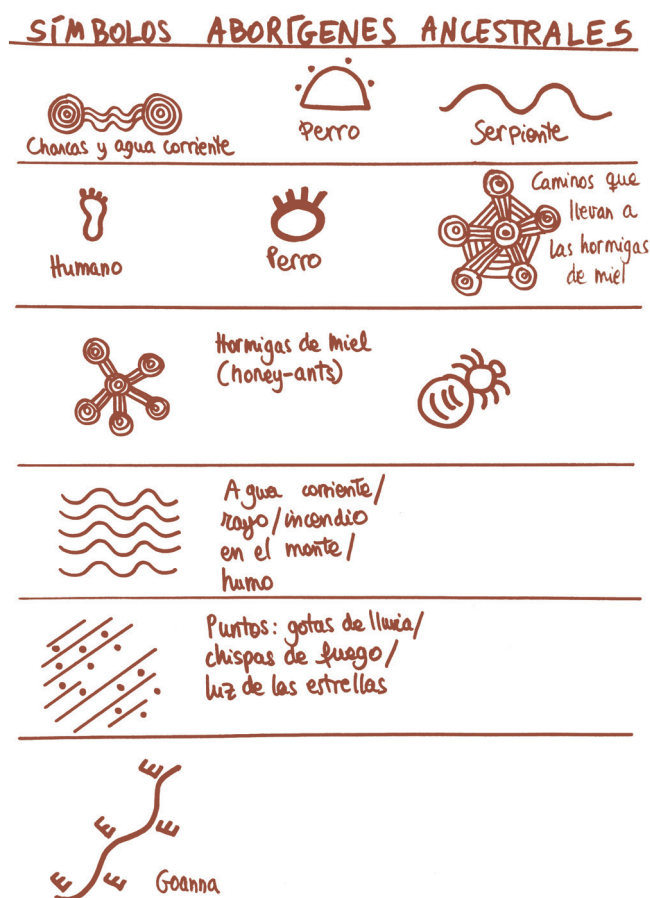 SÍMBOLOS ABORÍGENES ANCESTRALES
Charcas y agua corriente
Perro
Serpiente
Humano
Perro
Caminos que
llevan a
las hormigas
de miel
Hormigas de miel
(honey-ants)
Agua corriente/
rayo/incendio
en el monte/
humo
Puntos: gotas de lluvia/
chispas de fuego/
luz de las estrellas
Goanna